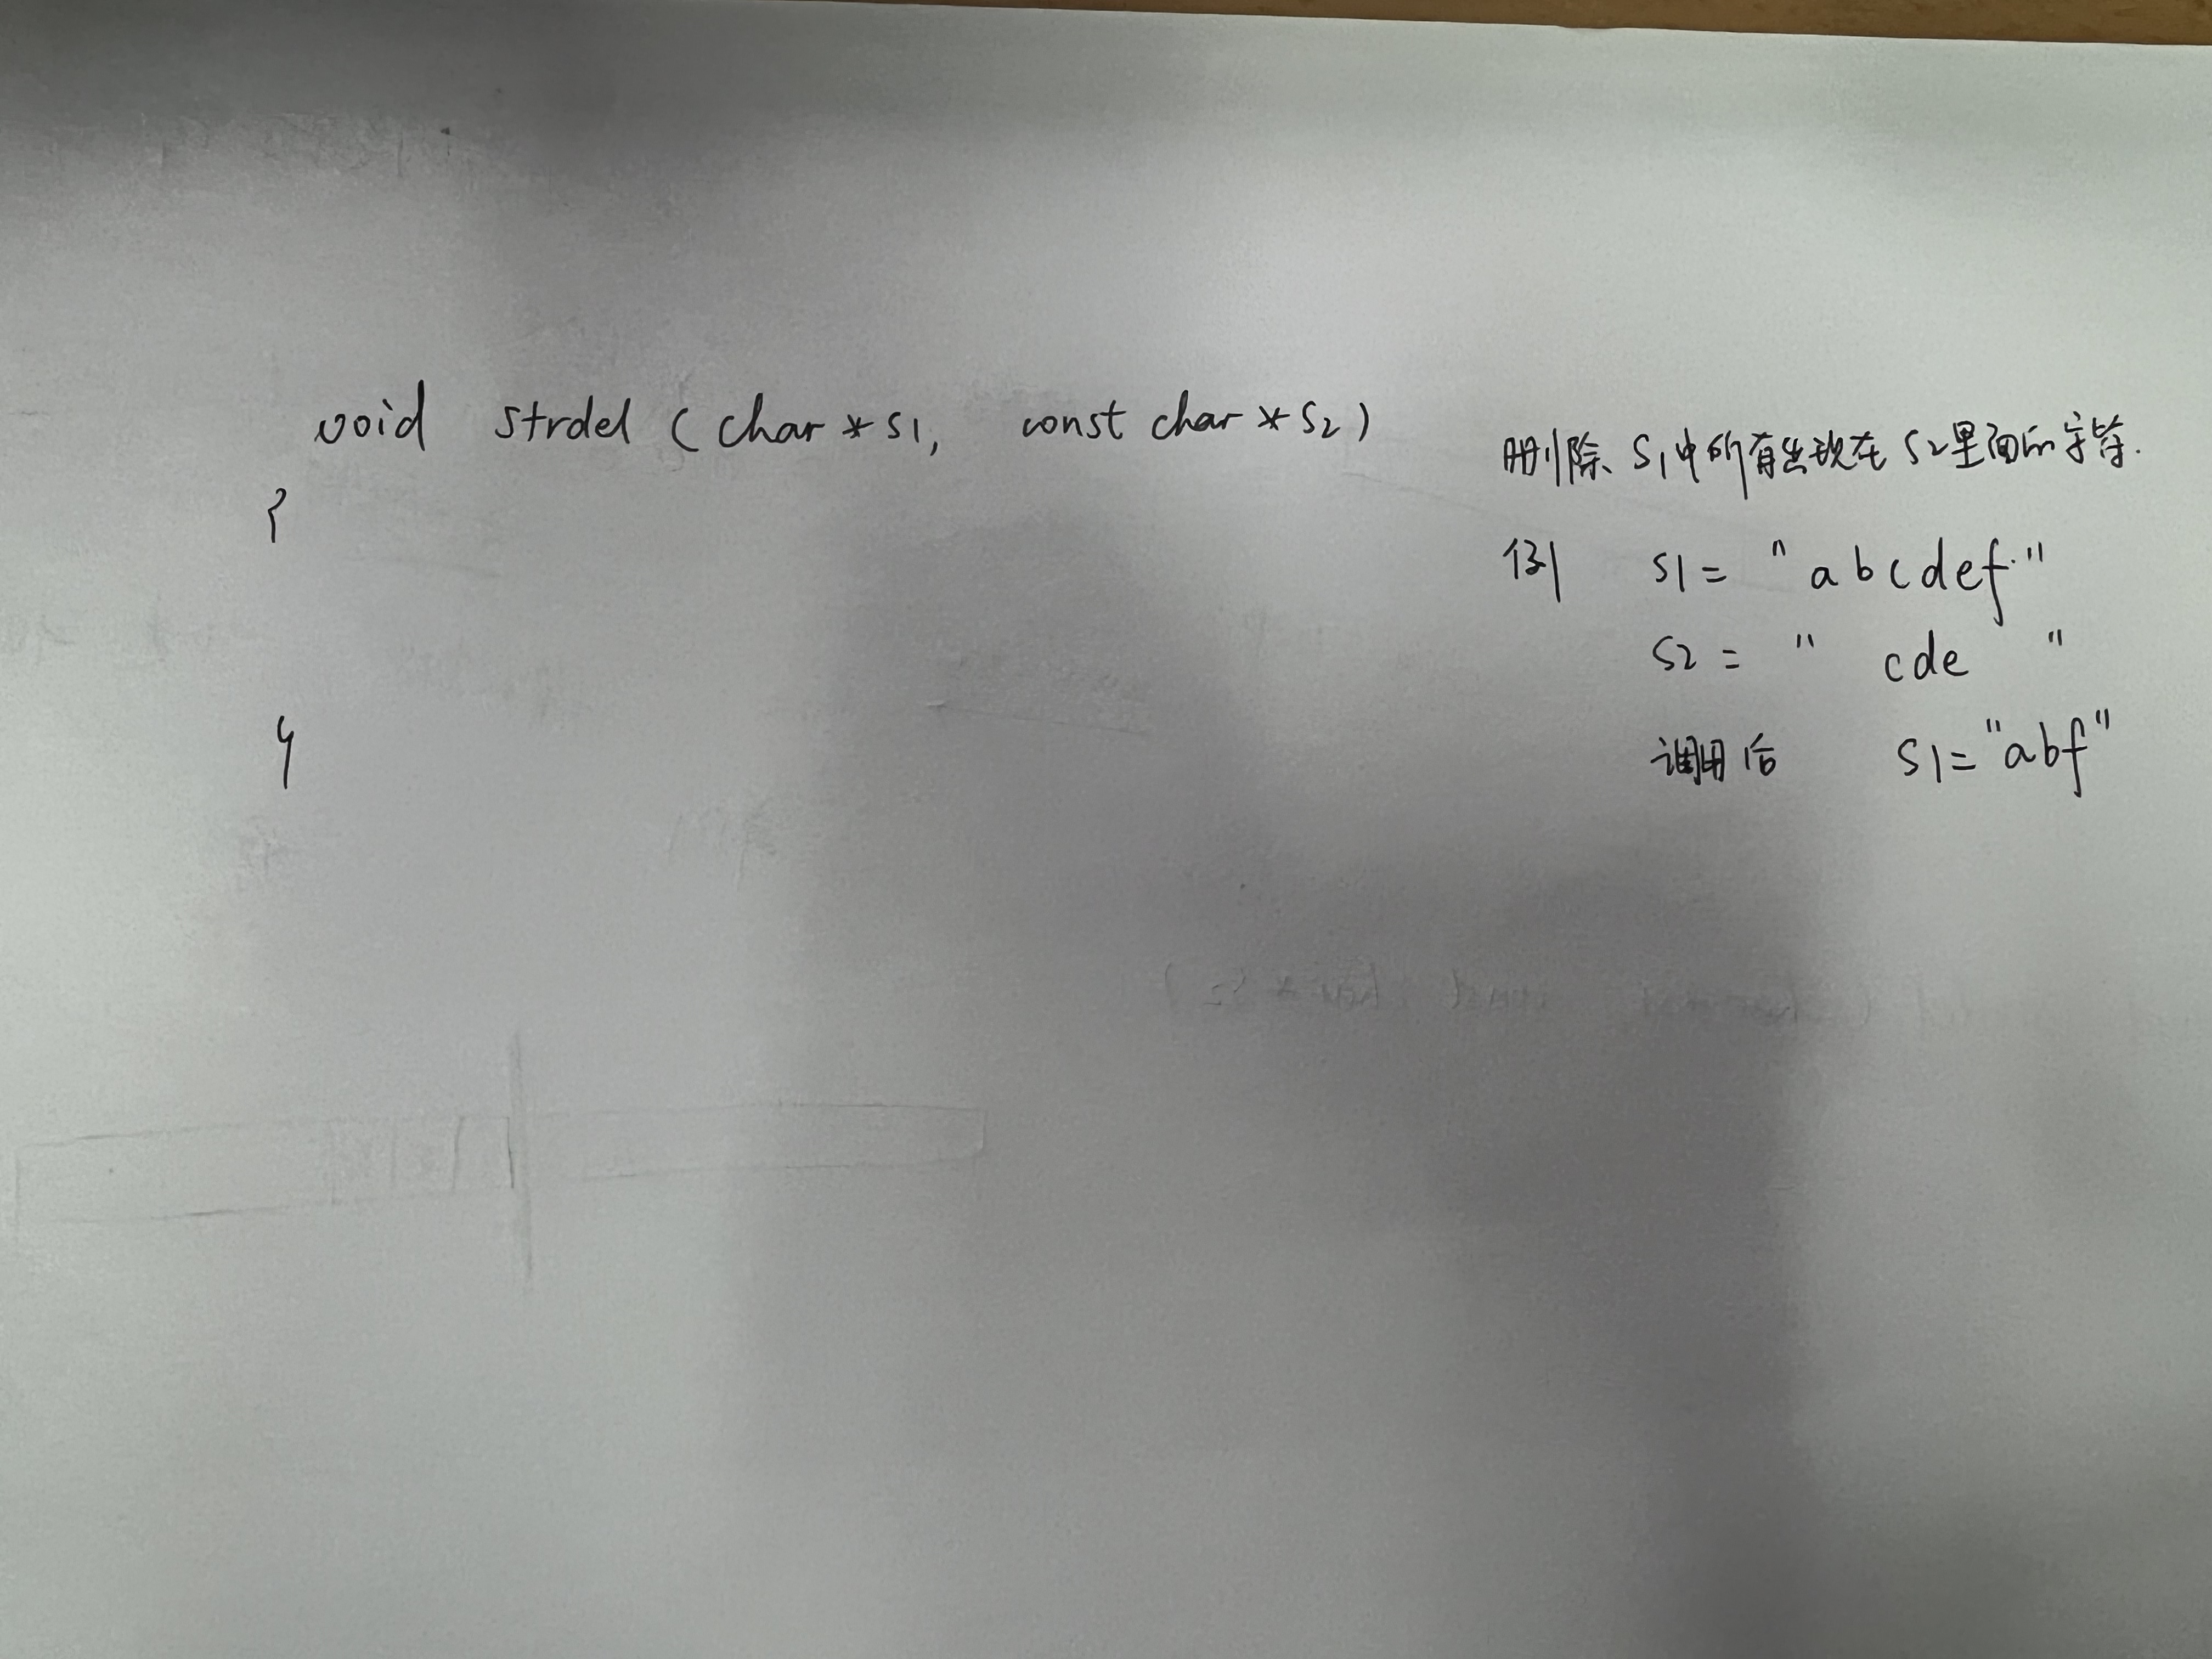 void strdel (char *s1, const char *s2)
{
}
删除 s1中所有出现在 s2里面的字符.
例 s1 = "abcdef"
s2 = "cde"
调用后 s1="abf"